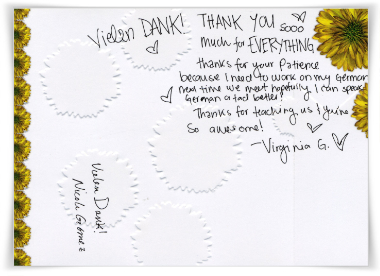 Vielen DANK!
THANK YOU sooo
much for EVERYTHING
Thanks for your Patience
because I need to work on my German
next time we meet hopefully I can speak
German a tad better!
Thanks for teaching us & you're
So awesome!
~Virginia G.
Vielen Dank!
Nicole Gómez